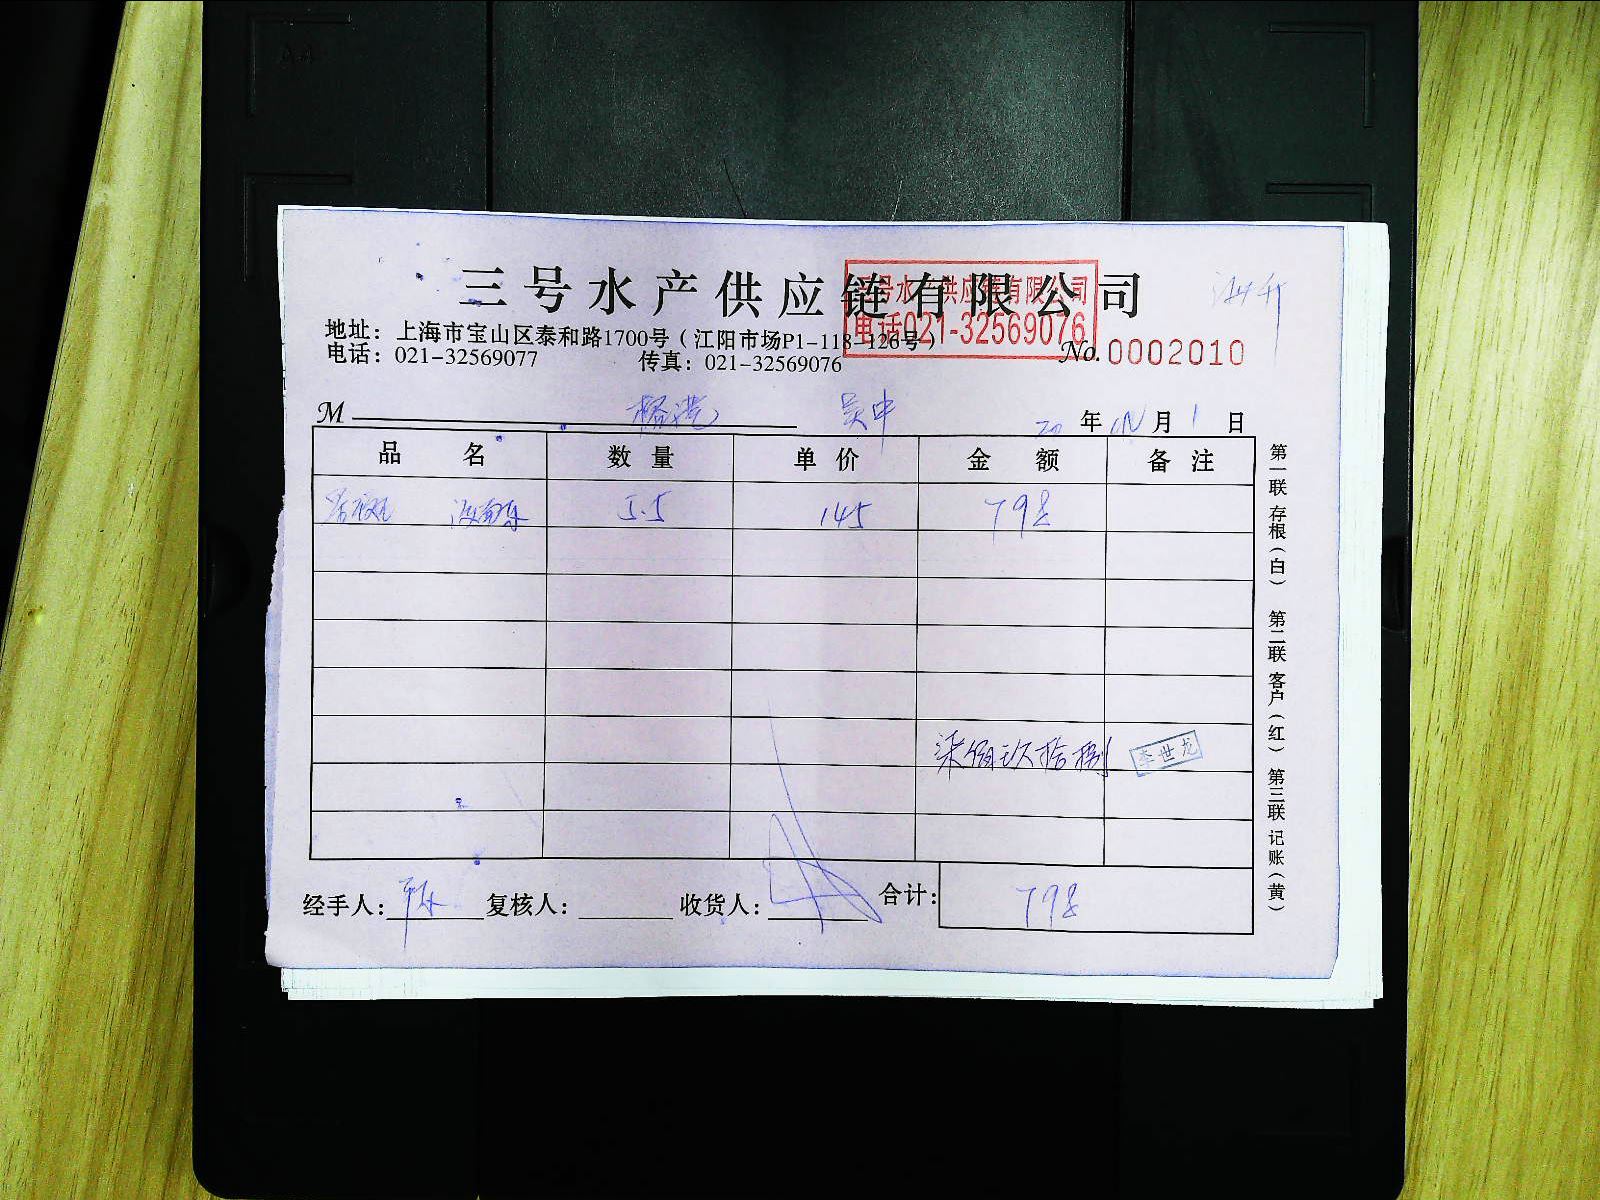 三号水产供应链有限公司
三号水产供应链有限公司
电话021-32569076
地址：上海市宝山区泰和路1700号（江阳市场P1-118-126号）
电话：021-32569077 传真：021-32569076
No. 0002010
M 杨浩 吴中 20 年 月 1 日
品名 数量 单价 金额 备注
5.5 145 798
柒佰玖拾捌 李世龙
经手人： 复核人： 收货人： 合计： 798
第一联 存根（白） 第二联 客户（红） 第三联 记账（黄）